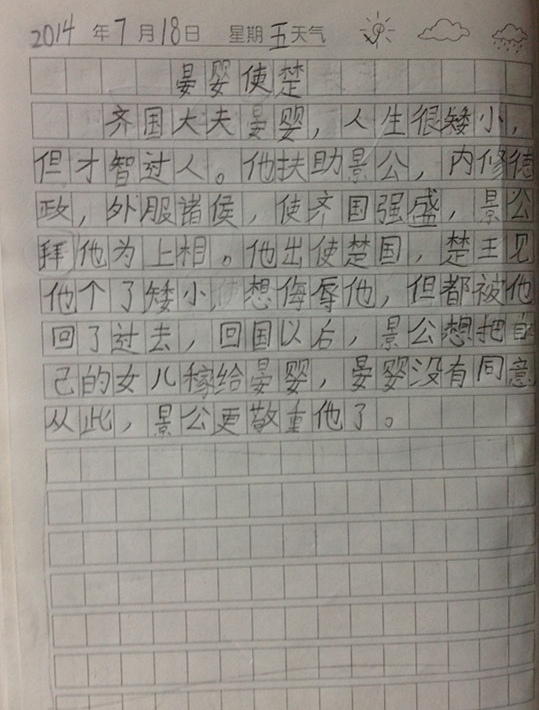 2014 年 7 月 18 日 星期 五 天气
晏婴使楚
齐国大夫晏婴，人生很矮小，
但才智过人。他扶助景公，内修德
政，外服诸侯，使齐国强盛，景公
拜他为上相。他出使楚国，楚王见
他个了矮小，想侮辱他，但都被他
回了过去，回国以右，景公想把自
己的女儿稼给晏婴，晏婴没有同意
从此，景公更敬重他了。